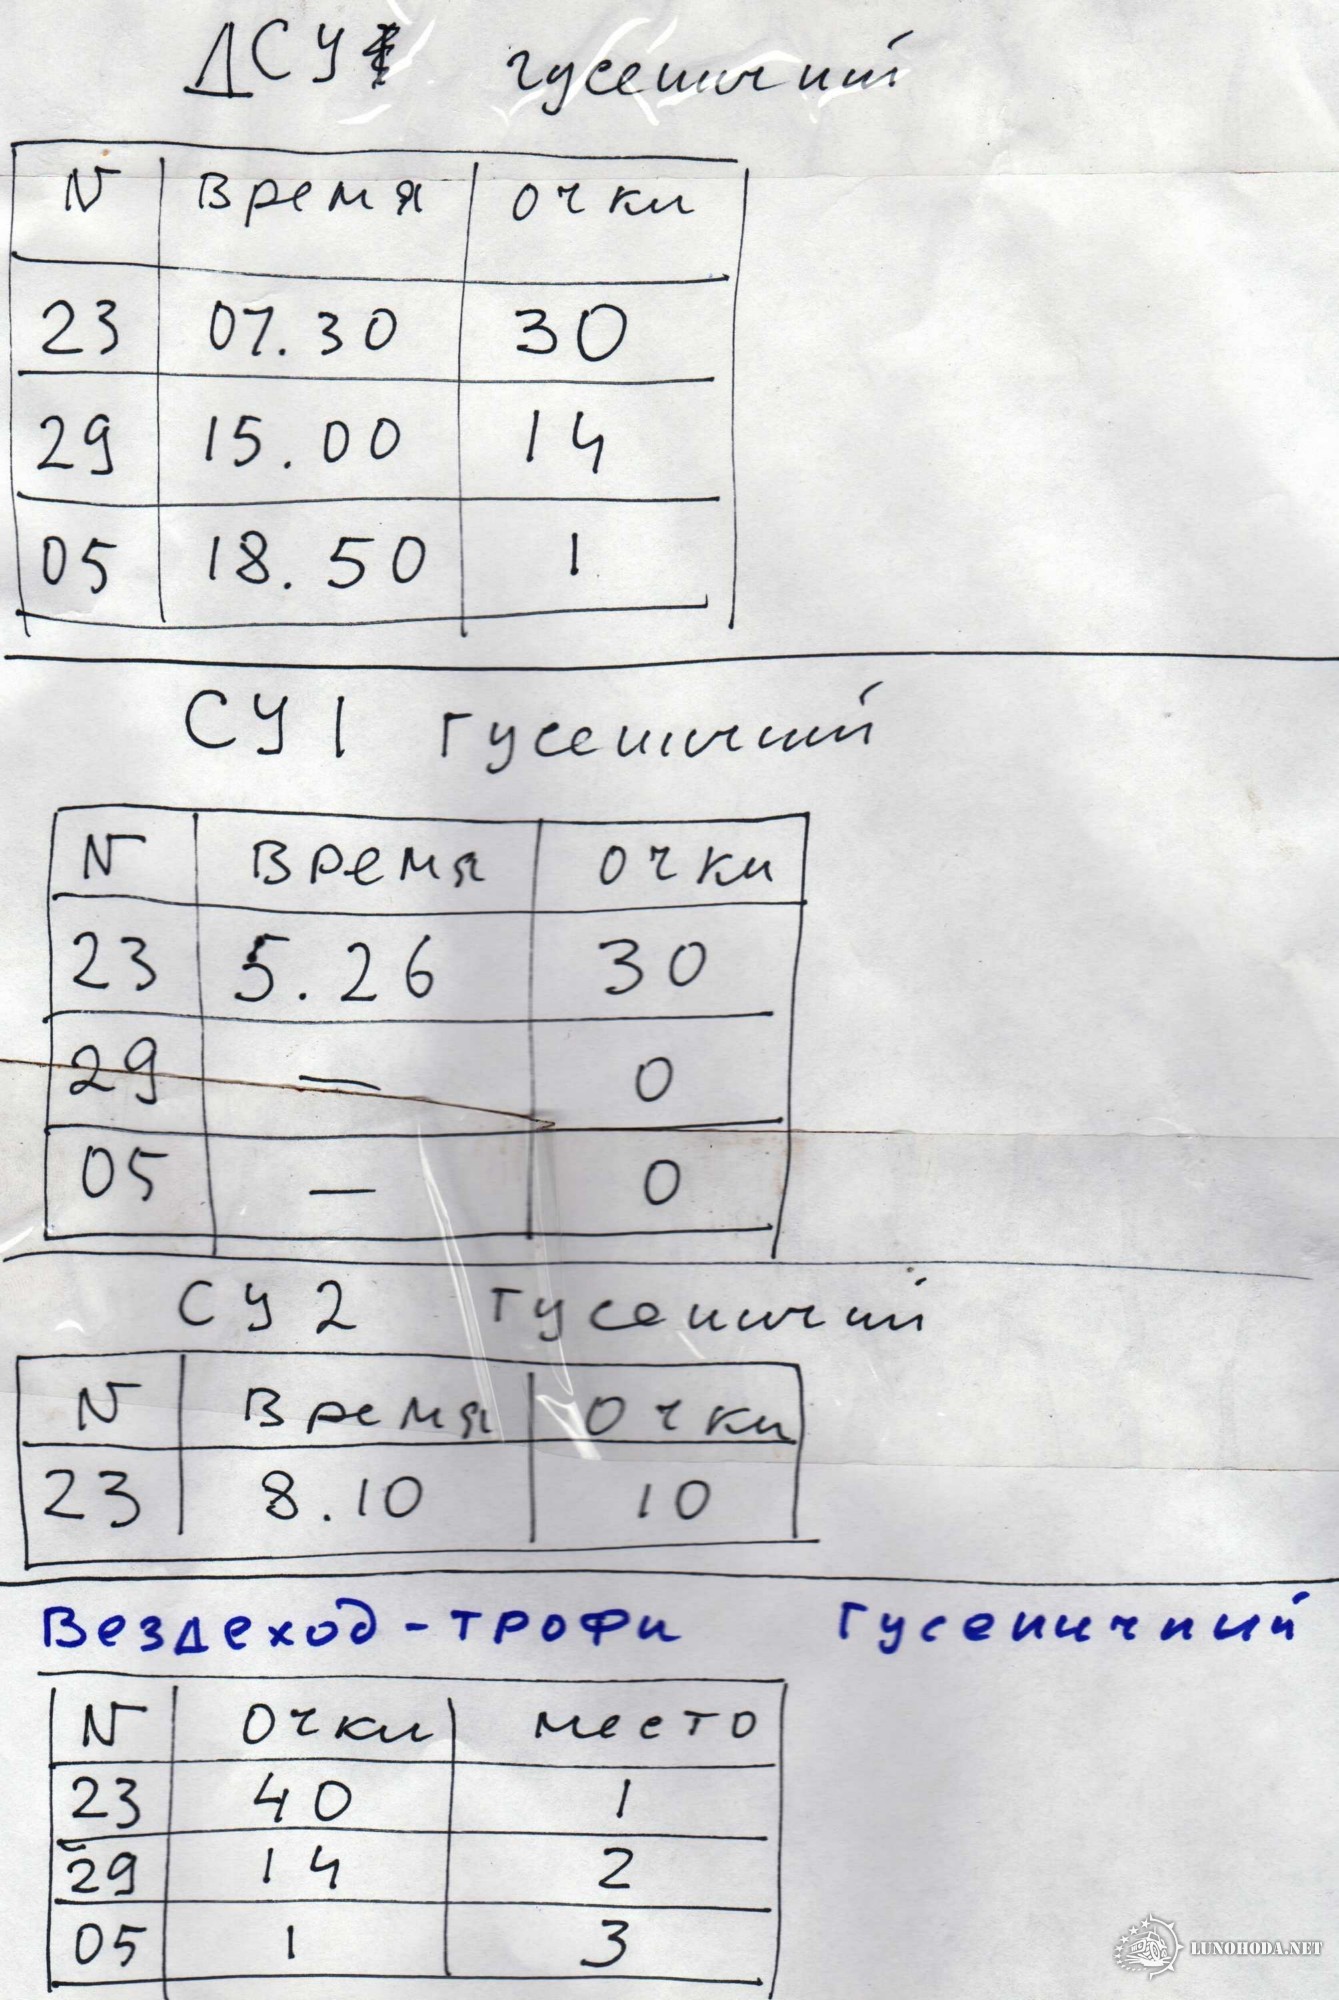 ДСУ гусеничный
N Время очки
23 07.30 30
29 15.00 14
05 18.50 1
СУ1 Гусеничный
N Время очки
23 5.26 30
29 — 0
05 — 0
СУ2 Гусеничный
N Время Очки
23 8.10 10
Вездеход-трофи Гусеничный
N Очки место
23 40 1
29 14 2
05 1 3
LUNOHODA.NET